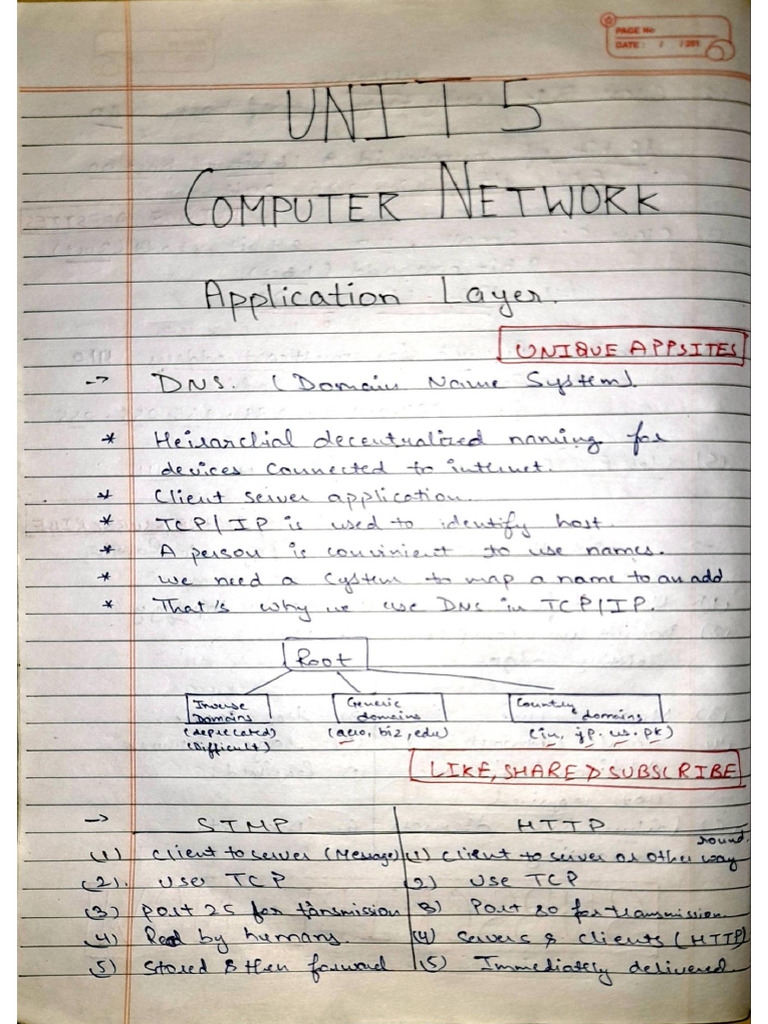 PAGE No
DATE : / /201
UNIT 5
COMPUTER NETWORK
Application Layer.
UNIQUE APPSITES
-> DNS. (Domain Name System).
* Heirarchial decentralized naming for
devices connected to internet.
* Client server application.
* TCP/IP is used to identify host.
* A person is convinient to use names.
* we need a system to map a name to an add
* That's why we use DNS in TCP/IP.
Root
Inverse Domains
(depricated)
(Difficult)
Generic domains
(aero, biz, edu)
Country domains
(in, jp. us. pk)
LIKE, SHARE & SUBSCRIBE
-> STMP HTTP
(1) Client to server (Message) (1) Client to server or other way round.
(2). use TCP (2) use TCP
(3) Port 25 for tansmission 3) Port 80 for transmission.
(4) Read by humans. (4) Servers & clients (HTTP)
(5) Stored & then forward (5) Immediately delivered.